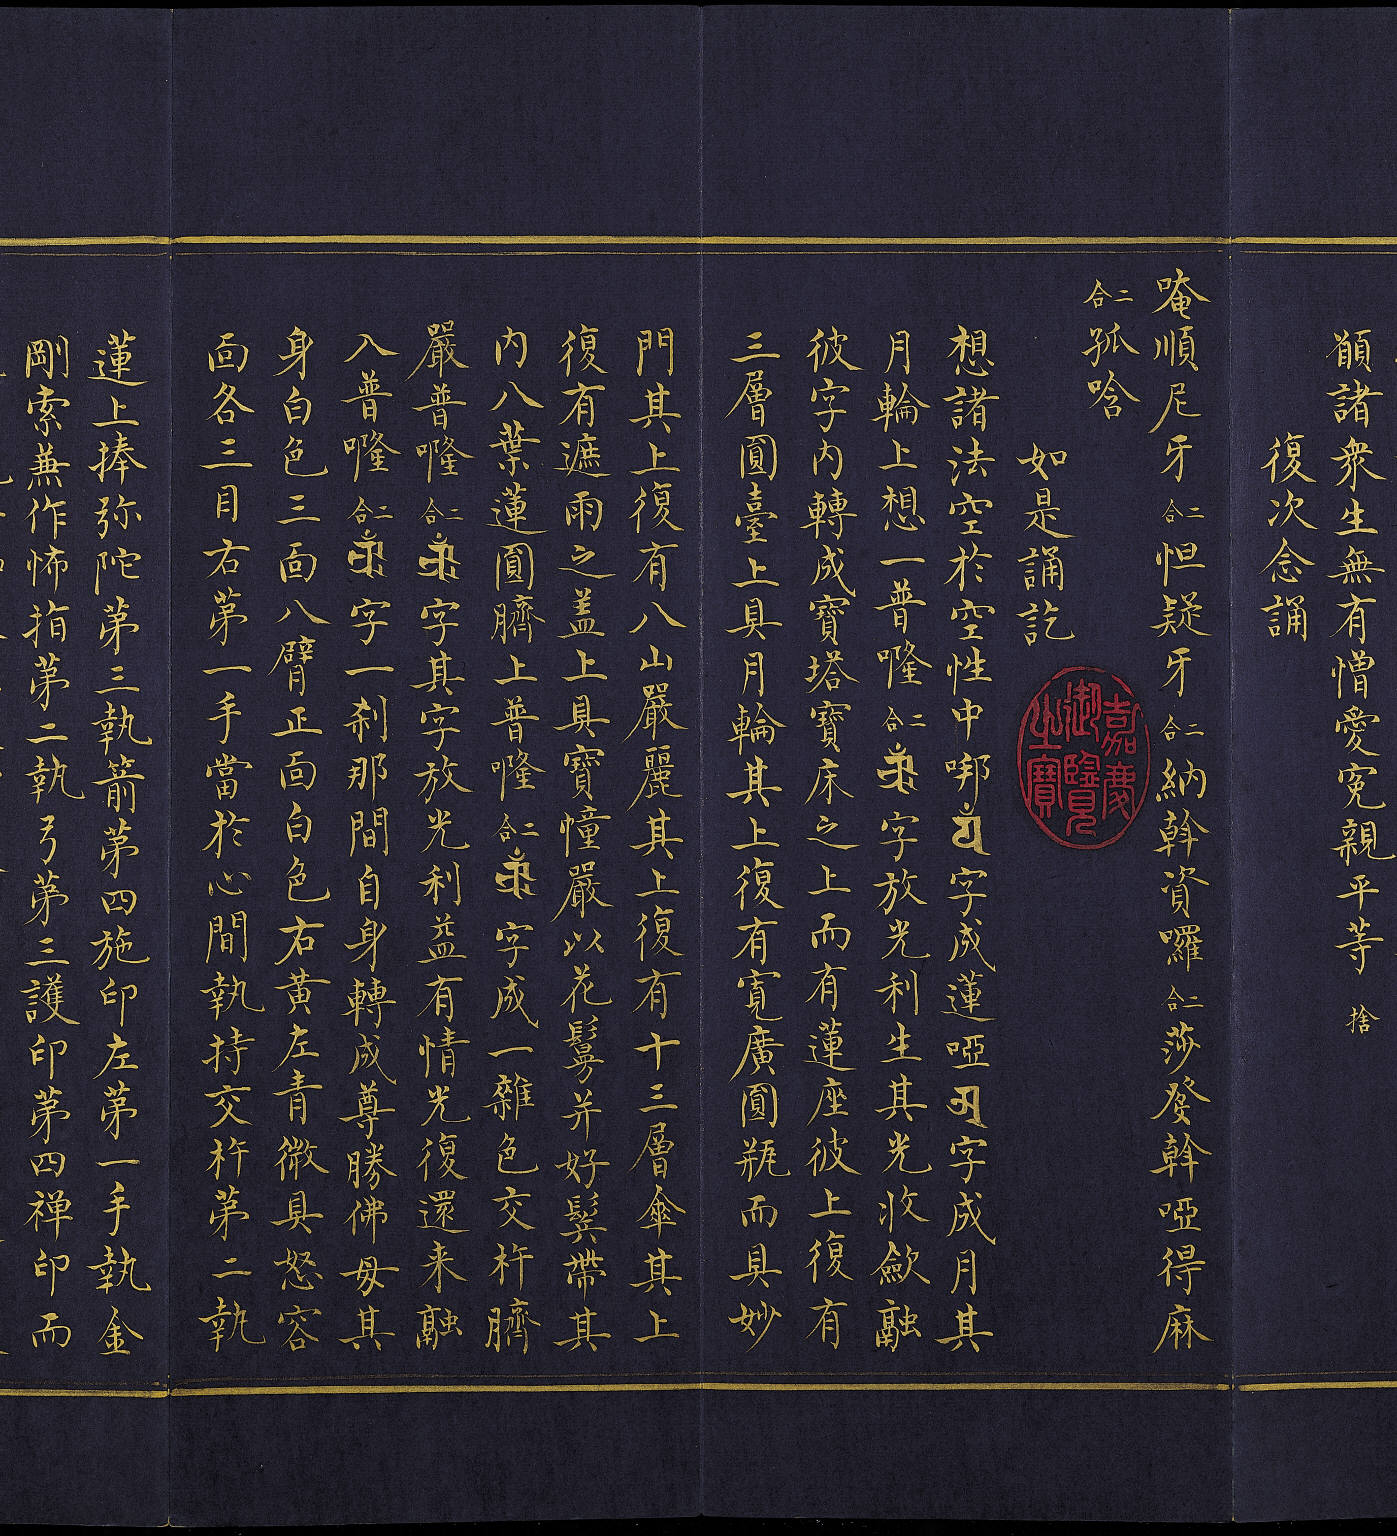 願諸衆生無有憎愛寃親平等 捨
復次念誦
唵順尼牙二合怛疑牙二合納斡資囉二合莎發斡啞得麻
二合孤唅
如是誦訖
嘉慶御覽之寶
想諸法空於空性中㖿字成蓮啞字成月其
月輪上想一普㘕二合字放光利生其光收歛融
彼字内轉成寶塔寶床之上而有蓮座彼上復有
三層圓臺上具月輪其上復有寬廣圓瓶而具妙
門其上復有八山嚴麗其上復有十三層傘其上
復有遮雨之盖上具寶幢嚴以花鬘并好䯼帶其
内八葉蓮圓臍上普㘕二合字成一雜色交杵臍
嚴普㘕二合字其字放光利益有情光復還来融
入普㘕二合字一刹那間自身轉成尊勝佛母其
身白色三面八臂正面白色右黄左青微具怒容
面各三目右第一手當於心間執持交杵第二執
蓮上捧弥陀第三執箭第四施印左第一手執金
剛索兼作怖指第二執弓第三護印第四禅印而